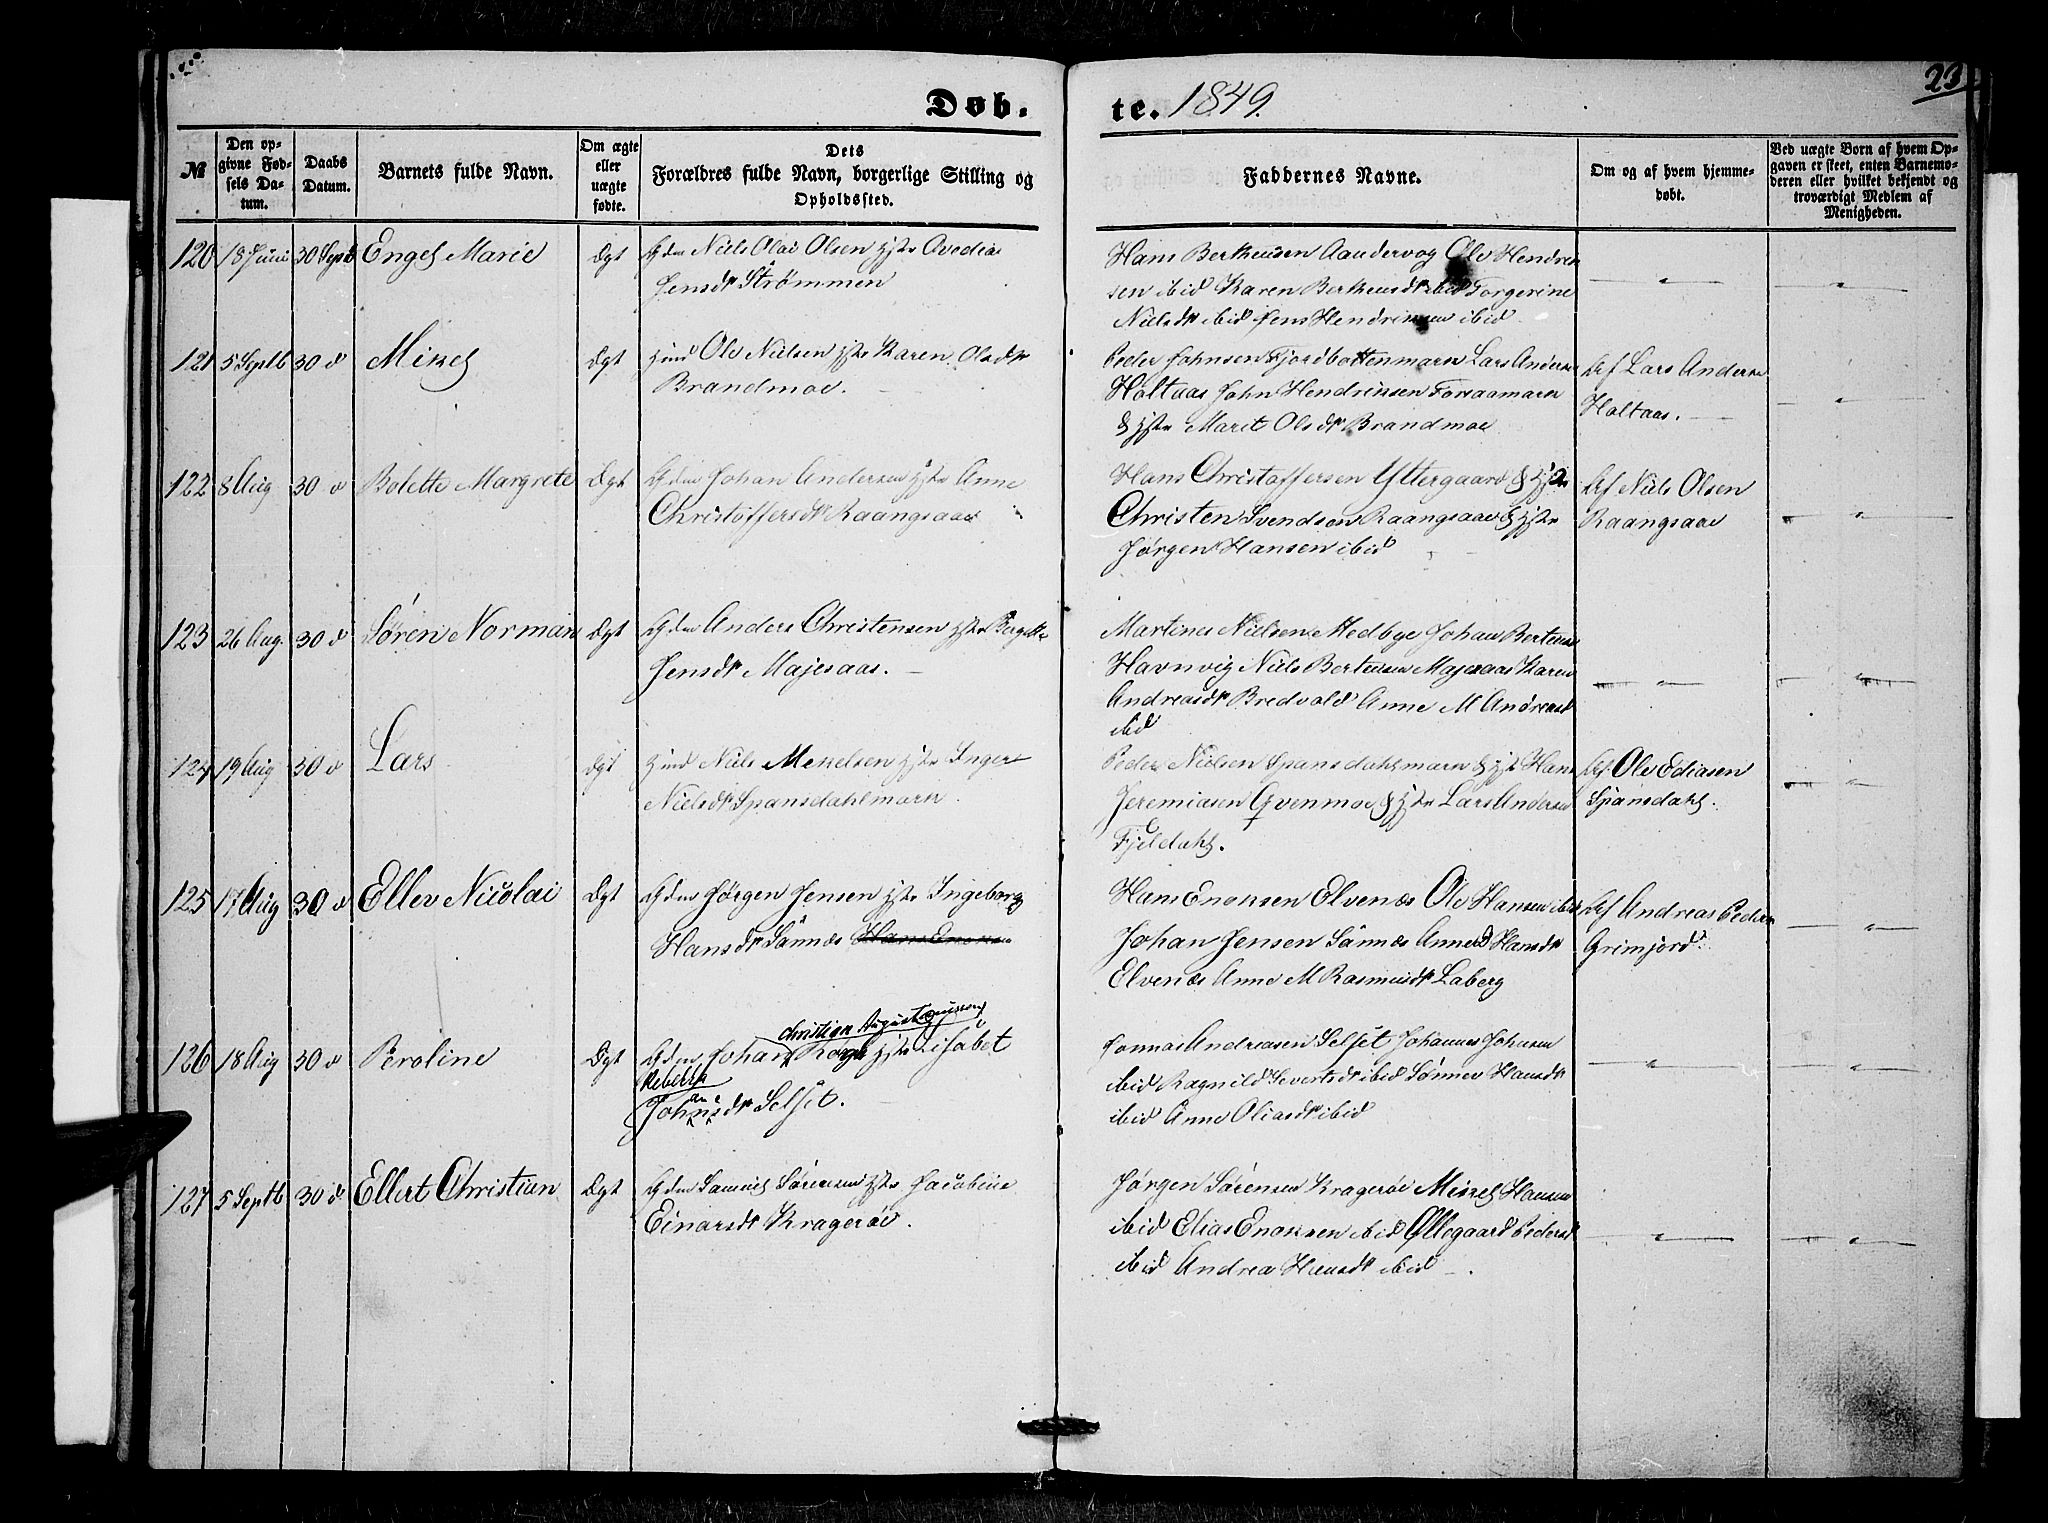 23
Døb. te. 1849.
№
Den opgivne Fødsels Datum.
Daabs Datum.
Barnets fulde Navn.
Om ægte eller uægte fødte.
Dets Forældres fulde Navn, borgerlige Stilling og Opholdssted.
Faddernes Navne.
Om og af hvem hjemmedøbt.
Ved uægte Børn af hvem Opgaven er skeet, enten Barnemoderen eller hvilket bekjendt og troværdigt Medlem af Menigheden.
120 18 Juni 30 Septb Engel Marie Ægt Gdm Niels Olai Olsen Hste
Jensdr Strømmen
Hans Bertheusen Aandervog Ole Hendrik
sen ibid Karen Bertheusdr ibid Torgerine
Nielsdr ibid Jens Hendriksen ibid
121 5 Septb 30 d Mikel Ægt Hmd Ole Nielsen Hste Karen Olsdr
Brandmoe.
Peder Johnsen Fjordbottenmark Lars Anderse
Holtaas John Hendriksen Forsaamark
& Hste Marit Olsdr Brandmoe
Af Lars Anderse
Holtaas.
122 8 Aug 30 d Bolette Margrete Ægt Gdm Johan Andersen Hste Anne
Christoffersdr Raangsaae
Hans Christoffersen Yttergaard & Hste
Christen Svendsen Raangsaae & Hste
Jørgen Hansen ibid
Af Niels Olsen
Raangsaae
123 26 Aug. 30 d Søren Norman Ægt Gdm Anders Christensen Hste Bergitte
Jensdr Majesaas.
Martines Nielsen Medbye Johan Berteuse
Havnvig Niels Berteusen Majesaas Karen
Andreasdr Bredvold Anne M Andreasd
ibid
124 19 Aug 30 d Lars Ægt Hmd Niels Mekelsen Hste Inger
Nielsdr Spansdahlmark.
Peder Nielsen Spansdahlmark & Hste Hans
Jeremiasen Qvenmoe & Hste Lars Anderse
Fjeldahl.
Af Ole Ediasen
Spansdahl.
125 17 Aug 30 d Ellev Nicolai Ægt Gdm Jørgen Jensen Hste Ingeborg
Hansdr Sannæs Hans Enokse
Hans Enoksen Elvenæs Ole Hansen ibid
Johan Jensen Sannæs Anne Hansdr
Elvenæs Anne M Rasmusdr Laberg
Af Andreas Peders
Grimjord.
126 18 Aug 30 d Peroline Ægt Gdm Johan Christian August Hste Lisabet
Rebekka
Johansdr Selset.
Andreasen Selset Johannes Johnsen
ibid Ragnild Sivertsdr ibid Sønnev Hansdr
ibid Anne Oliasdr ibid
127 5 Septb 30 d Ellert Christian Ægt Gdm Samuel Sørensen Hste Jacobine
Einarsdr Kragerøe.
Jørgen Sørensen Kragerøe Mikel Hansen
ibid Elias Enoksen ibid Øllegaard Pedersd
ibid Andrea Hansdr ibid